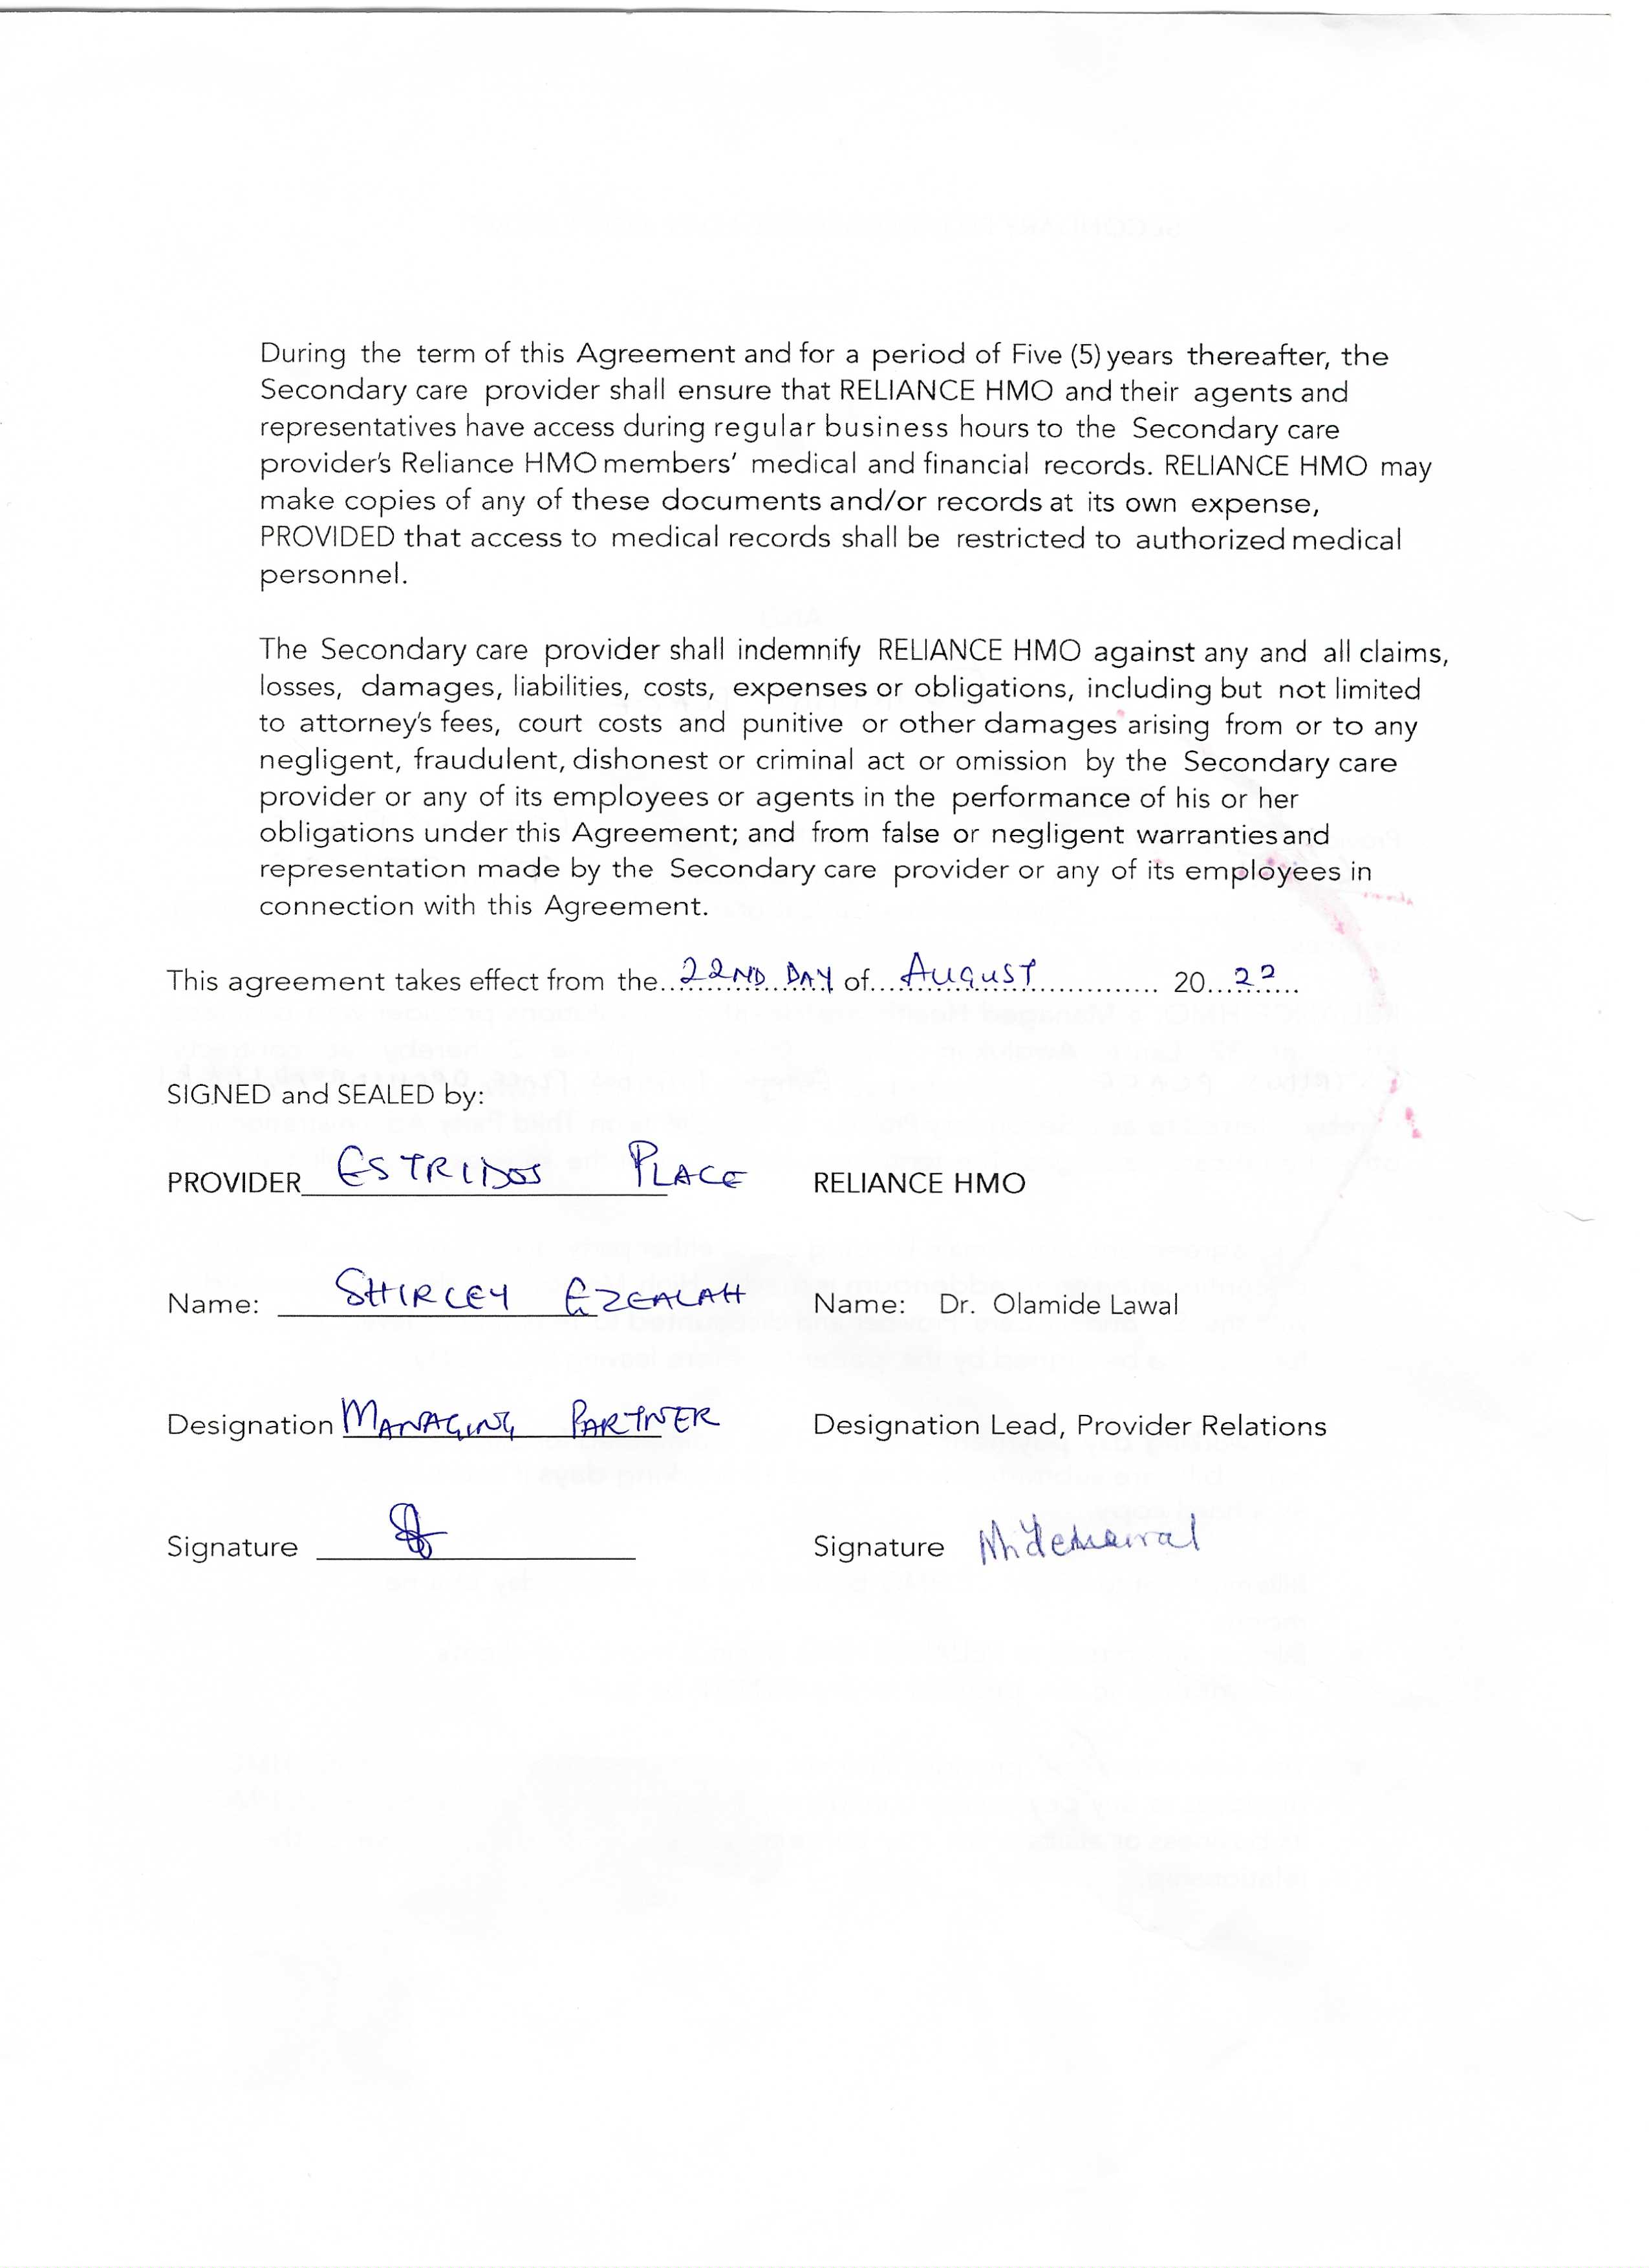 During the term of this Agreement and for a period of Five (5) years thereafter, the
Secondary care provider shall ensure that RELIANCE HMO and their agents and
representatives have access during regular business hours to the Secondary care
provider's Reliance HMO members' medical and financial records. RELIANCE HMO may
make copies of any of these documents and/or records at its own expense,
PROVIDED that access to medical records shall be restricted to authorized medical
personnel.
The Secondary care provider shall indemnify RELIANCE HMO against any and all claims,
losses, damages, liabilities, costs, expenses or obligations, including but not limited
to attorney's fees, court costs and punitive or other damages arising from or to any
negligent, fraudulent, dishonest or criminal act or omission by the Secondary care
provider or any of its employees or agents in the performance of his or her
obligations under this Agreement; and from false or negligent warranties and
representation made by the Secondary care provider or any of its employees in
connection with this Agreement.
This agreement takes effect from the..22ND DAY of..AUGUST.......... 20..22...
SIGNED and SEALED by:
PROVIDER ESTRIDOS PLACE RELIANCE HMO
Name: SHIRLEY EZEALAH Name: Dr. Olamide Lawal
Designation MANAGING PARTNER Designation Lead, Provider Relations
Signature Signature